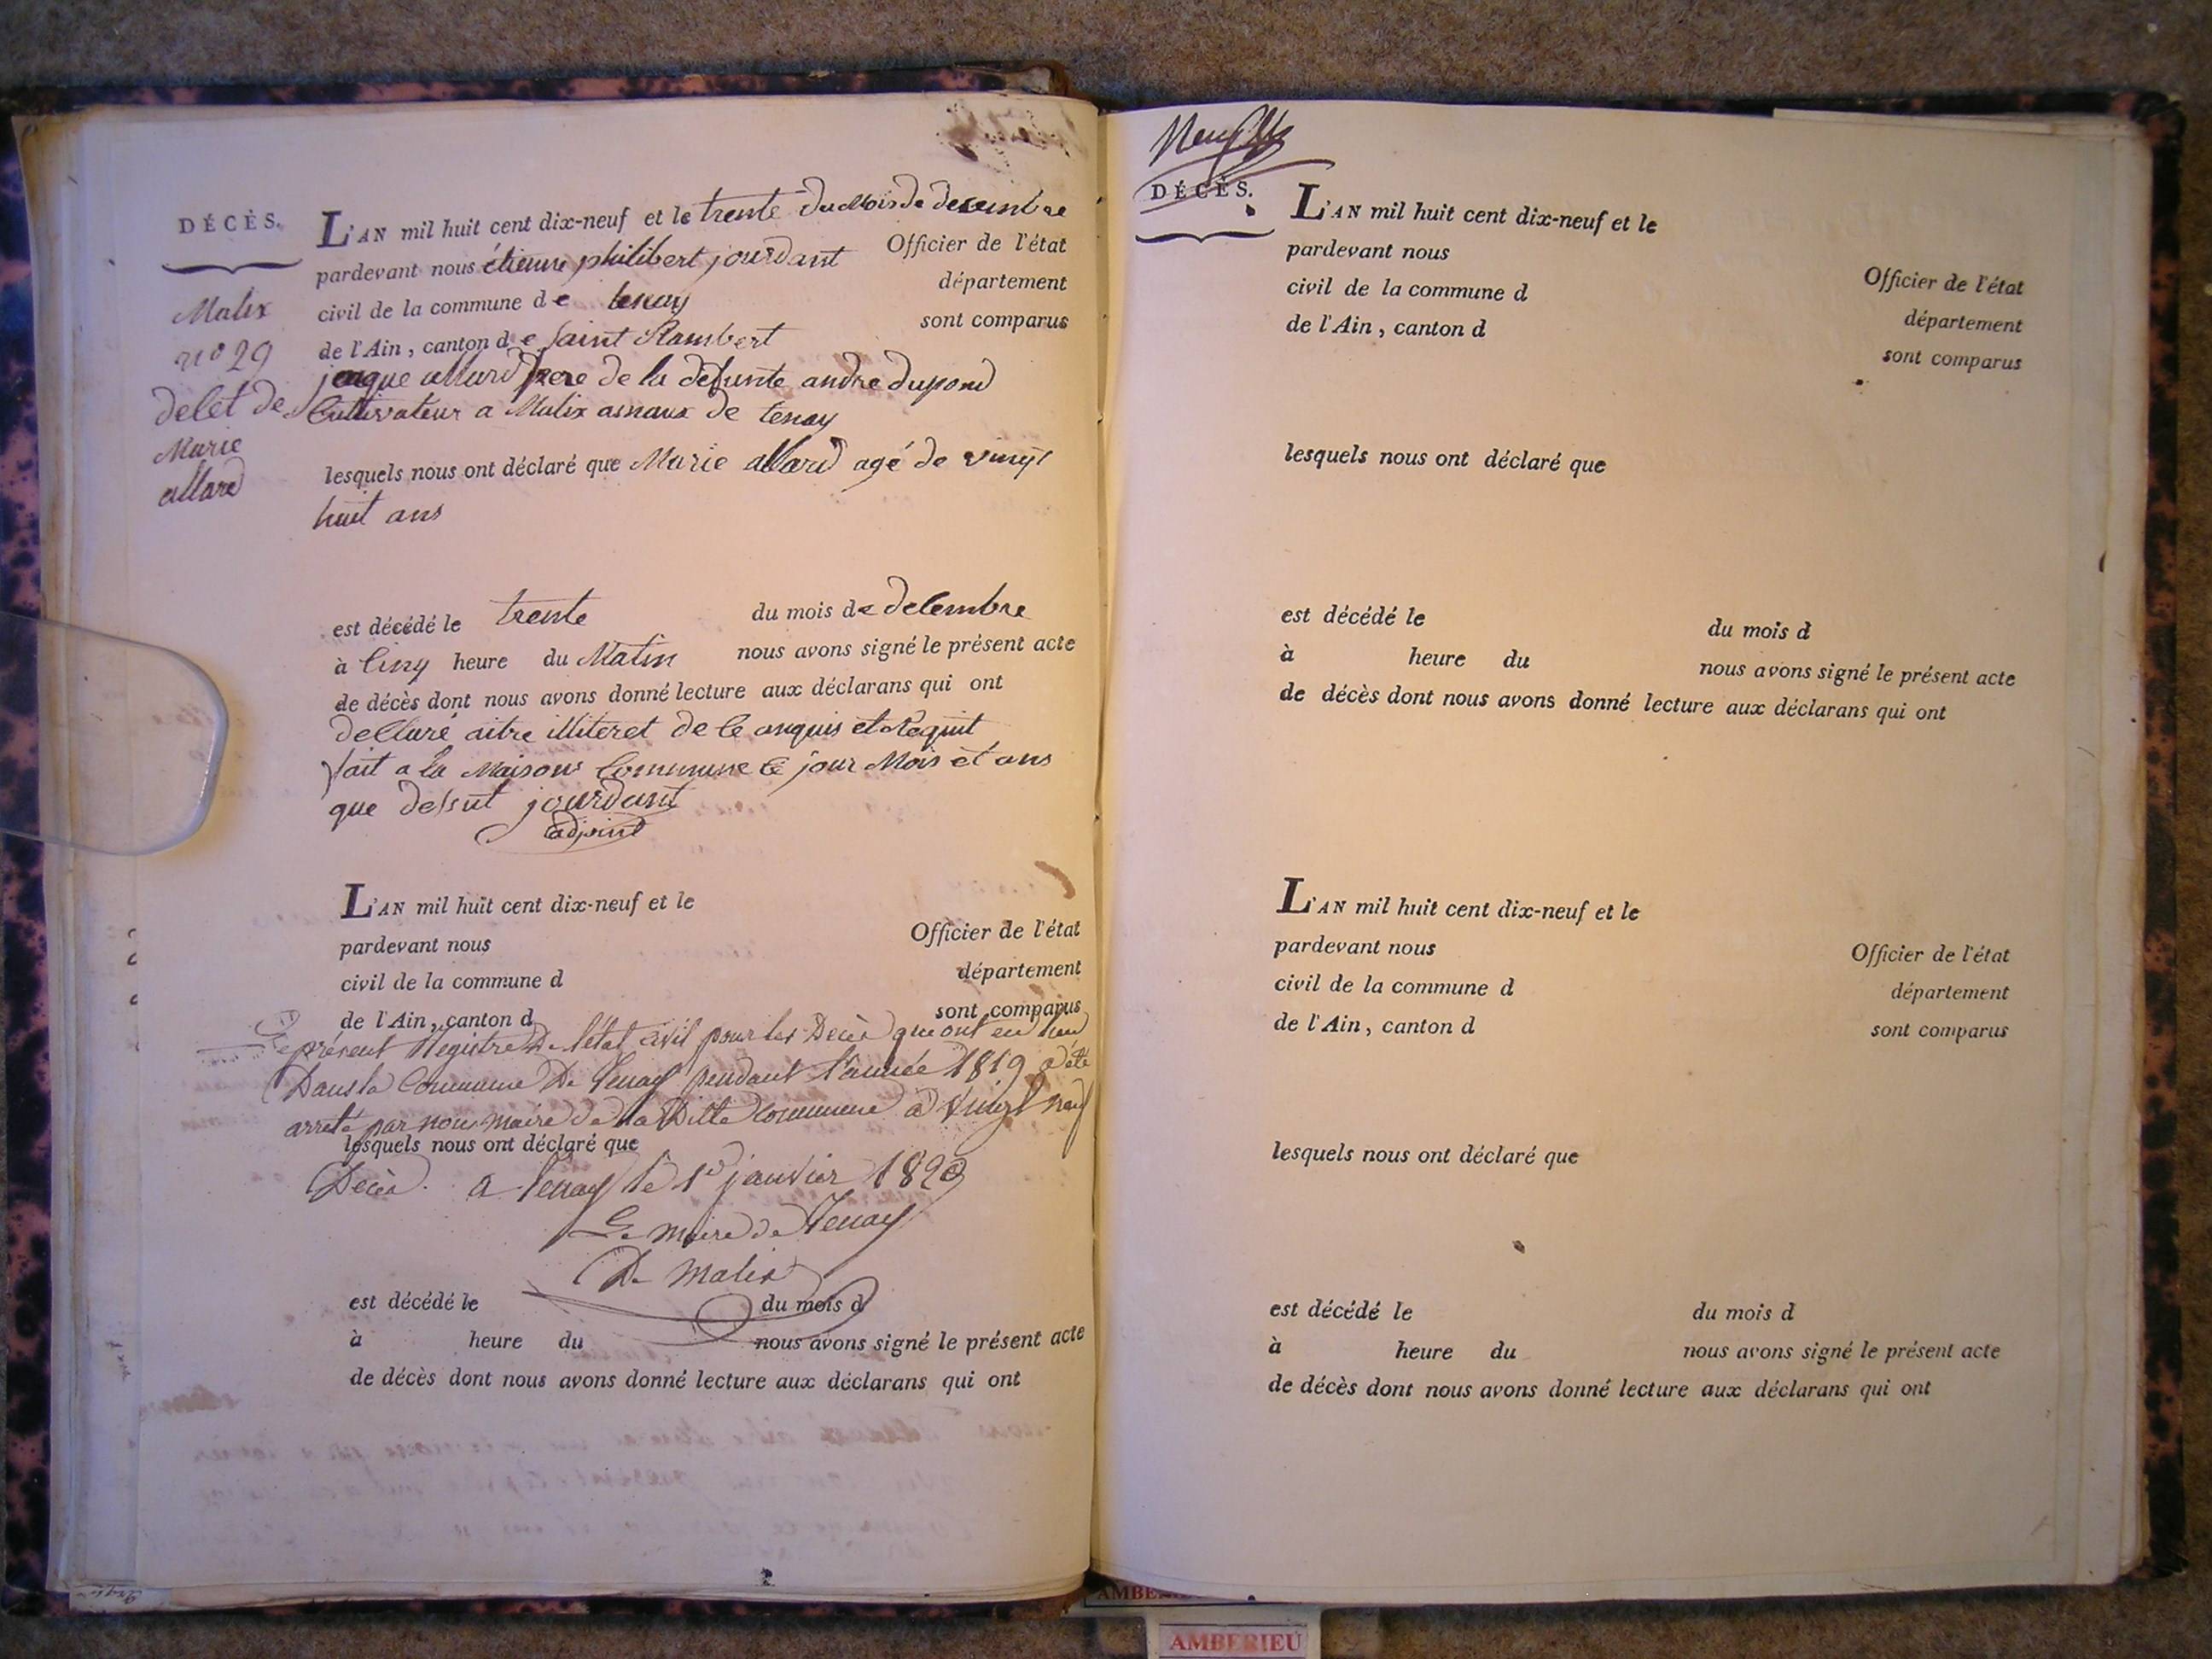 DÉCÈS.
L'AN mil huit cent dix-neuf et le trente du Mois de decembre
pardevant nous étienne philibert jourdant Officier de l'état
civil de la commune de tenay département
de l'Ain, canton de Saint Rambert sont comparus
jaque allard pere de la defunte andre dupond
Cultivateur a Malix amaux de tenay
Malix
n° 29
decet de
Marie
allard
lesquels nous ont déclaré que Marie allard agé de vingt
huit ans
est décédé le trente du mois de decembre
à Cinq heure du Matin nous avons signé le présent acte
de décès dont nous avons donné lecture aux déclarans qui ont
declaré aitre illiteret de ce anquis et Requit
fait a la Maison Commune ce jour Mois et ans
que dessut jourdant
adjoint
L'AN mil huit cent dix-neuf et le
pardevant nous Officier de l'état
civil de la commune d département
de l'Ain, canton d sont comparus
Le présent Registre De l'état civil pour les Décès qui ont eu lieu
Dans la Commune De Tenay pendant l'année 1819 a été
arrêté par nous maire de la Ditte Commune à vingt neuf
lesquels nous ont déclaré que
Décès. a Tenay le 1er janvier 1820
Le Maire de Tenay
De Malix
est décédé le du mois d
à heure du nous avons signé le présent acte
de décès dont nous avons donné lecture aux déclarans qui ont
DÉCÈS.
L'AN mil huit cent dix-neuf et le
pardevant nous Officier de l'état
civil de la commune d département
de l'Ain, canton d sont comparus
lesquels nous ont déclaré que
est décédé le du mois d
à heure du nous avons signé le présent acte
de décès dont nous avons donné lecture aux déclarans qui ont
L'AN mil huit cent dix-neuf et le
pardevant nous Officier de l'état
civil de la commune d département
de l'Ain, canton d sont comparus
lesquels nous ont déclaré que
est décédé le du mois d
à heure du nous avons signé le présent acte
de décès dont nous avons donné lecture aux déclarans qui ont
AMBERIEU